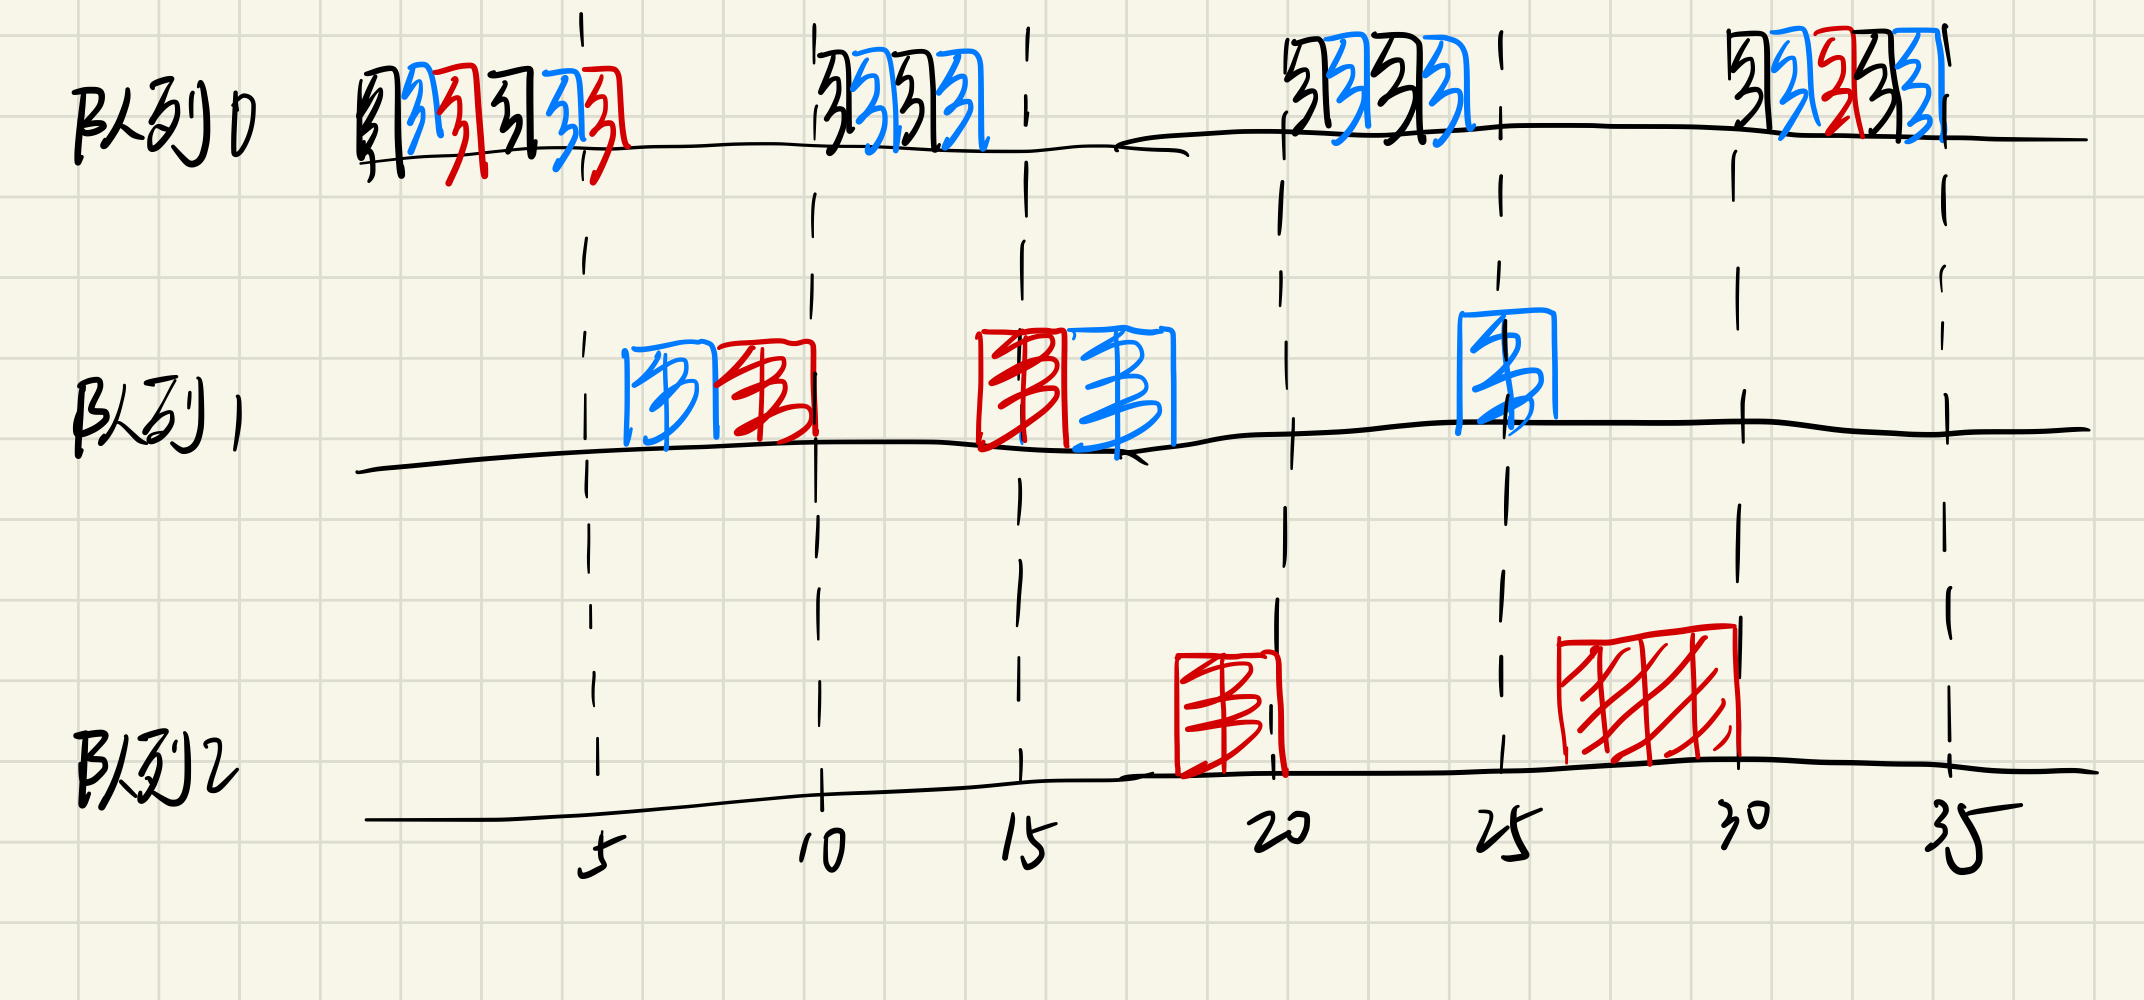 队列0
队列1
队列2
5 10 15 20 25 30 35